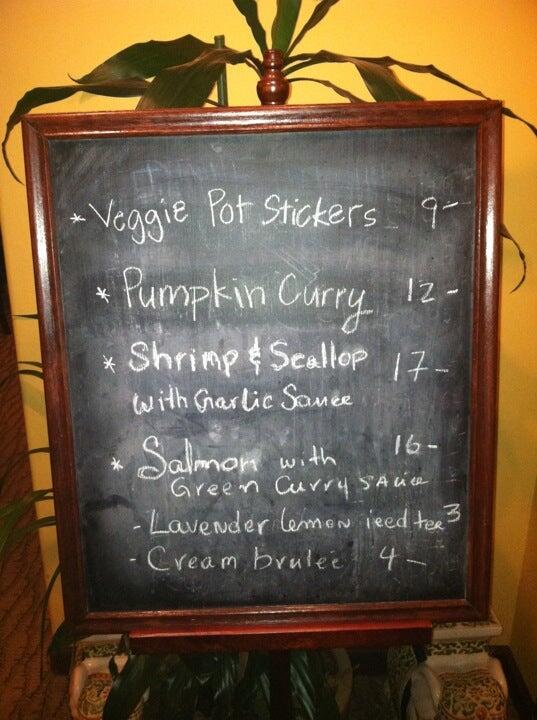 * Veggie Pot Stickers 9-
* Pumpkin Curry 12-
* Shrimp & Scallop 17-
with Garlic Sauce
* Salmon with 16-
Green Curry sauce
- Lavender lemon iced tea 3
- Cream brulee 4-